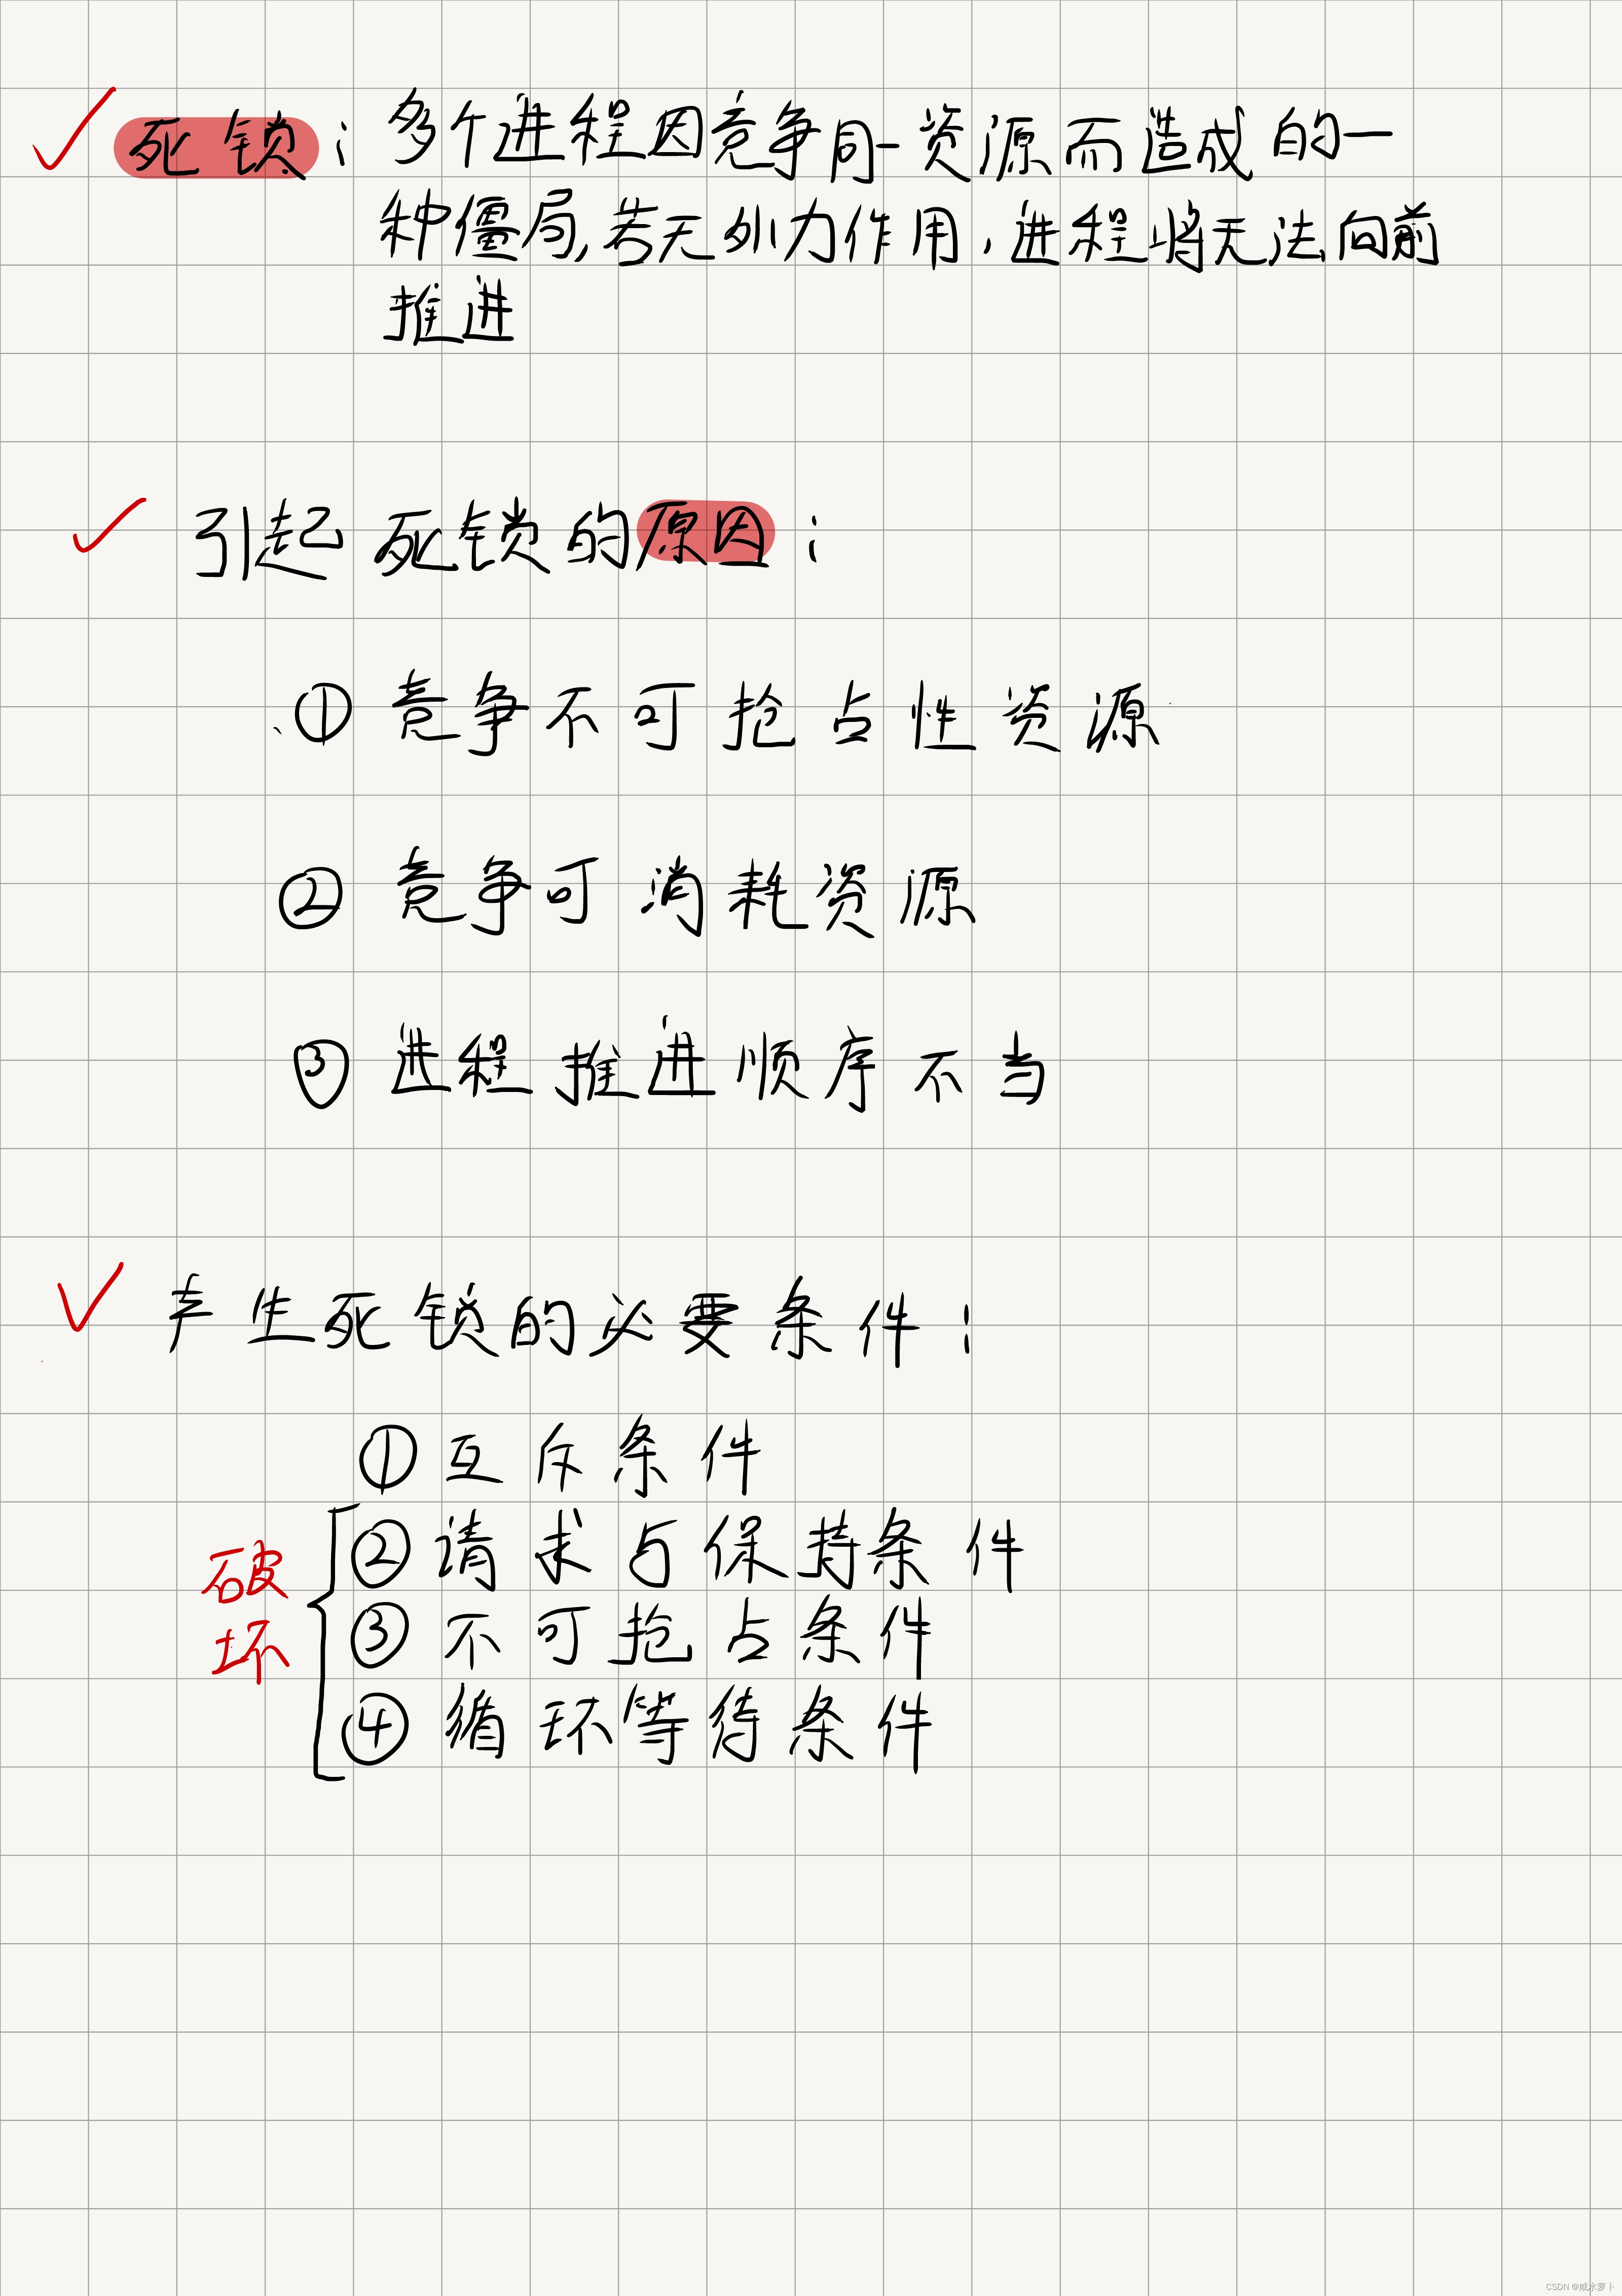 死锁：多个进程因竞争同一资源而造成的一
种僵局，若无外力作用，进程将无法向前
推进
引起死锁的原因：
① 竞争不可抢占性资源
② 竞争可消耗资源
③ 进程推进顺序不当
产生死锁的必要条件：
① 互斥条件
破坏
② 请求与保持条件
③ 不可抢占条件
④ 循环等待条件
CSDN @咸水萝卜